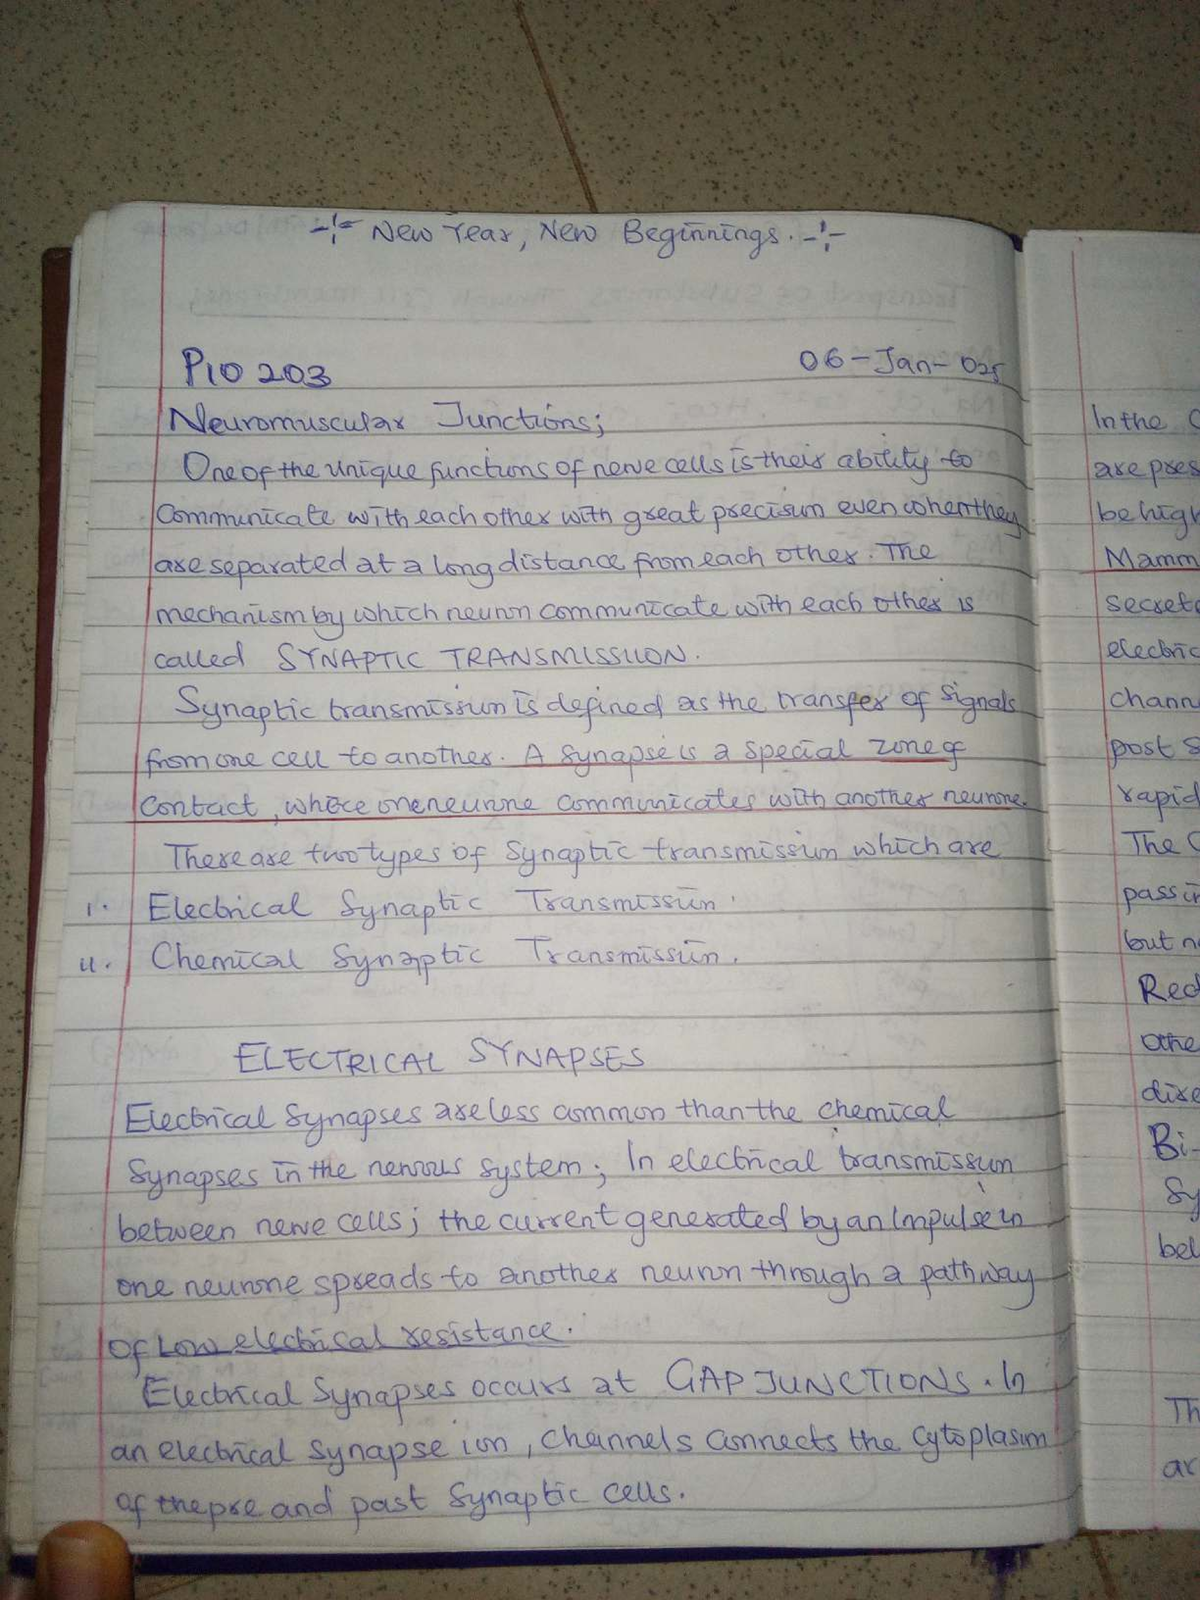 New Year, New Beginnings.
PIO 203
06-Jan-025
Neuromuscular Junctions;
One of the unique functions of nerve cells is their ability to
communicate with each other with great precision even when they
are separated at a long distance from each other. The
mechanism by which neuron communicate with each other is
called SYNAPTIC TRANSMISSION.
Synaptic transmission is defined as the transfer of signals
from one cell to another. A synapse is a special zone of
contact, where one neurone communicates with another neurone.
There are two types of synaptic transmission which are
i. Electrical Synaptic Transmission.
ii. Chemical Synaptic Transmission.
ELECTRICAL SYNAPSES
Electrical Synapses are less common than the chemical
Synapses in the nervous system; In electrical transmission
between nerve cells; the current generated by an impulse in
one neurone spreads to another neuron through a pathway
of low electrical resistance.
Electrical Synapses occurs at GAP JUNCTIONS. In
an electrical synapse ion, channels connects the cytoplasm
of the pre and past Synaptic cells.
In the
are pres
be high
Mamm
secret
electric
chann
post s
rapid
The
pass in
but n
Red
othe
dise
Bi-
Sy
bel
Th
ar